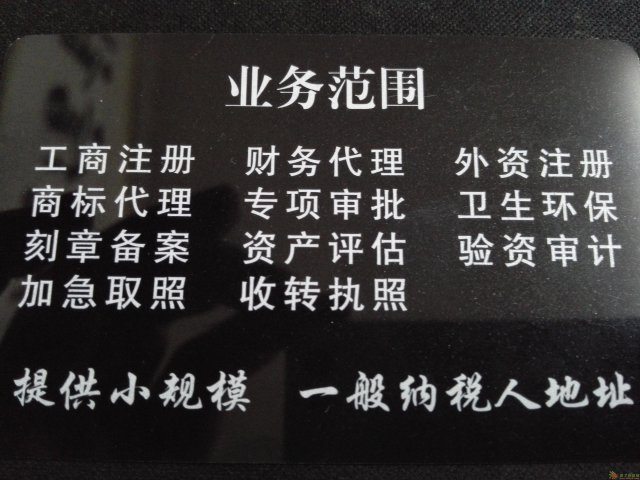 业务范围
工商注册 财务代理 外资注册
商标代理 专项审批 卫生环保
刻章备案 资产评估 验资审计
加急取照 收转执照
提供小规模 一般纳税人地址